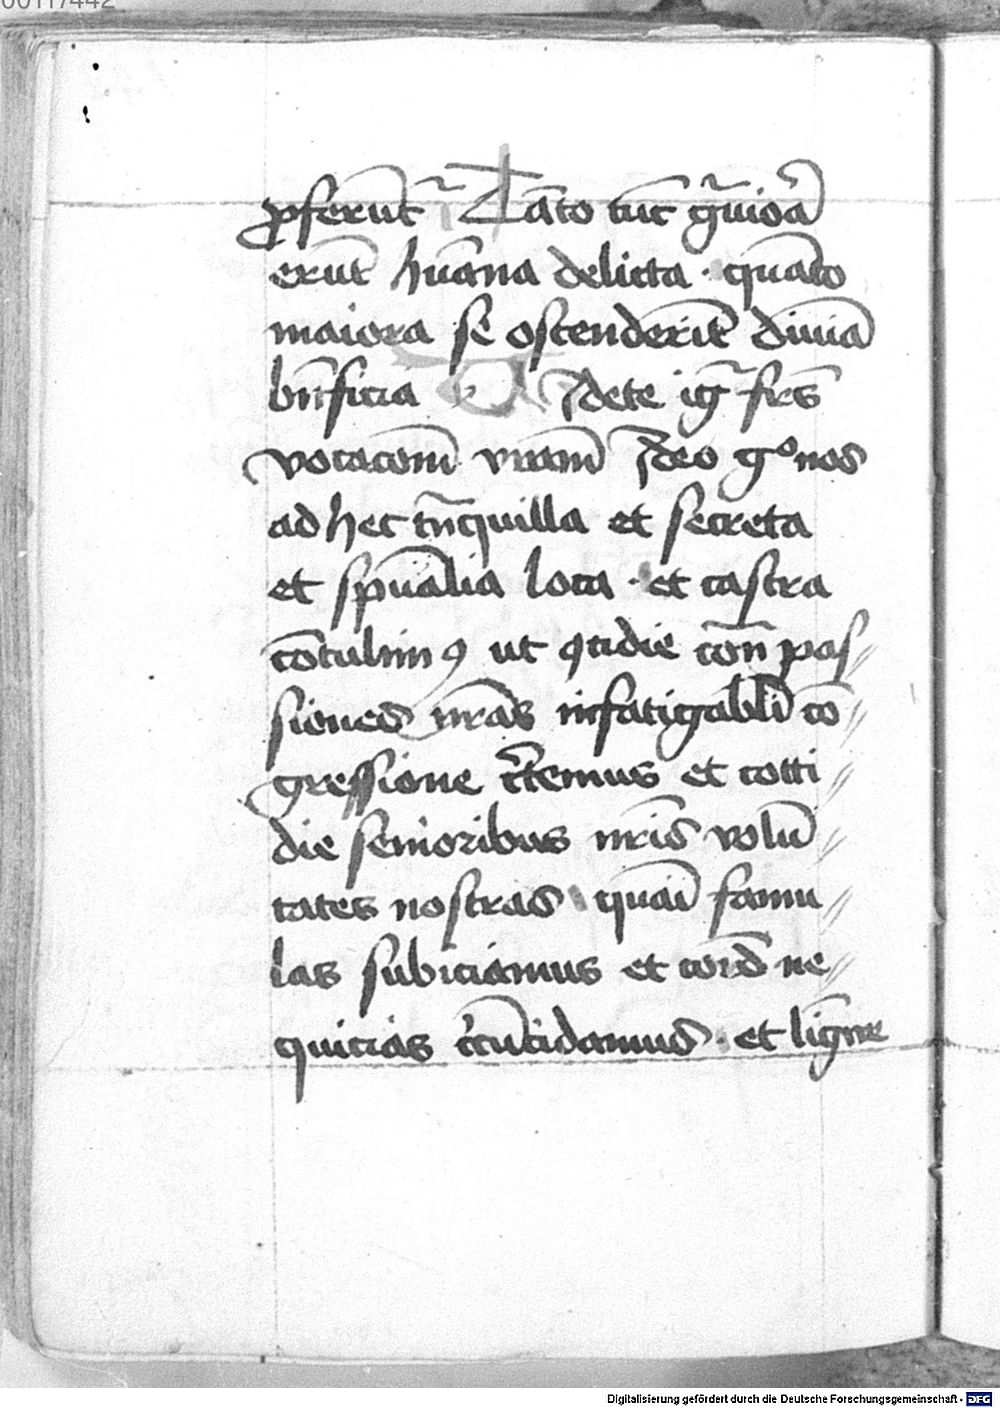 00117442
ꝓferūt᷑ Tāto tūc g̃uioã
erūt hūana delicta · quāto
maiora se ostenderīt diuīa
bn̄ficia Videte ig̃ fr̄s
vocacōnē vr̄am Ideo gº nos
ad hec tn̄quilla et secreta
et spūalia loca · et castra
cōtulimꝰ ut qtidie cōn pas//
siones nr̄as infatigabil̄i cō//
gressione c̄temus et cotti//
die senioribus nr̄is volū//
tates nostras quāi famu//
las subiciamus et cord̄ ne//
quicias c̄cūcidamus · et ligne
Digitalisierung gefördert durch die Deutsche Forschungsgemeinschaft - DFG